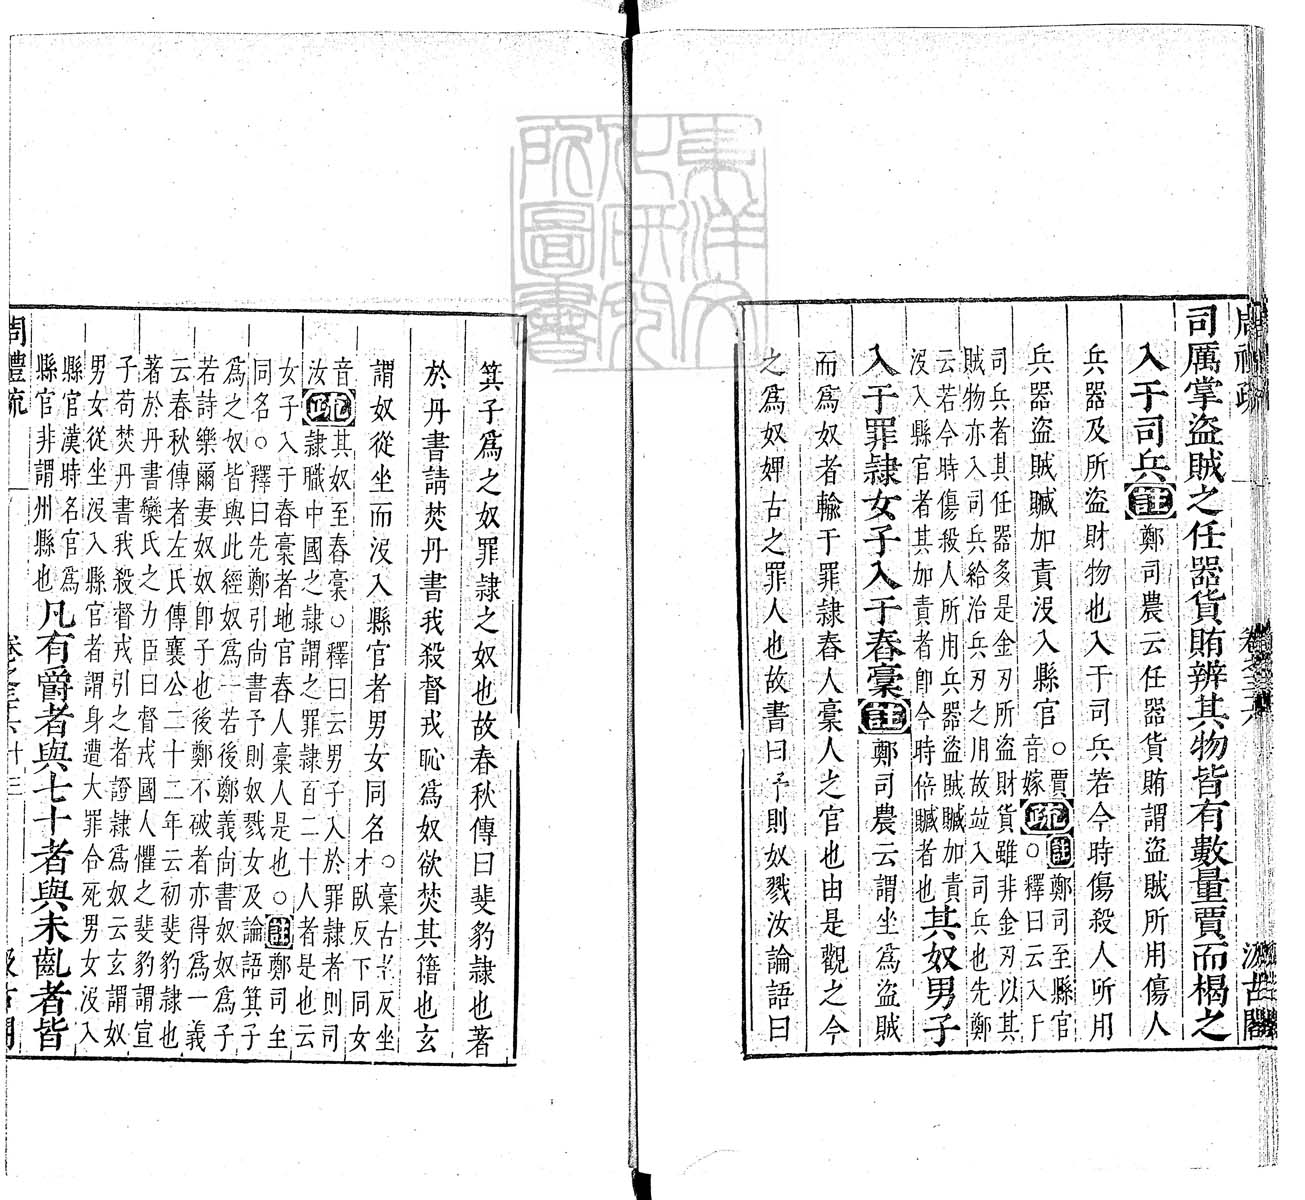 周禮疏 卷之三六 汲古閣
司厲掌盜賊之任器貨賄辨其物皆有數量賈而楬之
入于司兵註鄭司農云任器貨賄謂盜賊所用傷人
兵器及所盜財物也入于司兵若今時傷殺人所用
兵器盜賊贓加責沒入縣官○賈音嫁疏註鄭司至縣官○釋曰云入于
司兵者其任器多是金刃所盜財貨雖非金刃以其
賊物亦入司兵給治兵刃之用故竝入司兵也先鄭
云若今時傷殺人所用兵器盜賊贓加責
沒入縣官者其加責者卽今時倍贓者也其奴男子
入于罪隷女子入于舂槀註鄭司農云謂坐爲盜賊
而爲奴者輸于罪隷舂人槀人之官也由是觀之今
之爲奴婢古之罪人也故書曰予則奴戮汝論語曰
箕子爲之奴罪隷之奴也故春秋傳曰斐豹隷也著
於丹書請焚丹書我殺督戎恥爲奴欲焚其籍也玄
謂奴從坐而沒入縣官者男女同名○槀古杲反坐才臥反下同女
音汝疏其奴至舂槀○釋曰云男子入於罪隷者則司
隷職中國之隷謂之罪隷百二十人者是也云
女子入于舂槀者地官舂人槀人是也○註鄭司至
同名○釋曰先鄭引尙書予則奴戮女及論語箕子
爲之奴皆與此經奴爲一若後鄭義尙書奴奴爲子
若詩樂爾妻奴奴卽子也後鄭不破者亦得爲一義
云春秋傳者左氏傳襄公二十二年云初斐豹隷也
著於丹書欒氏之力臣曰督戎國人懼之斐豹謂宣
子苟焚丹書我殺督戎引之者證隷爲奴云玄謂奴
男女從坐沒入縣官者謂身遭大罪合死男女沒入
縣官漢時名官爲
縣官非謂州縣也凡有爵者與七十者與未齓者皆
周禮疏 卷之三六 十三 汲古閣
東洋文化研究所圖書